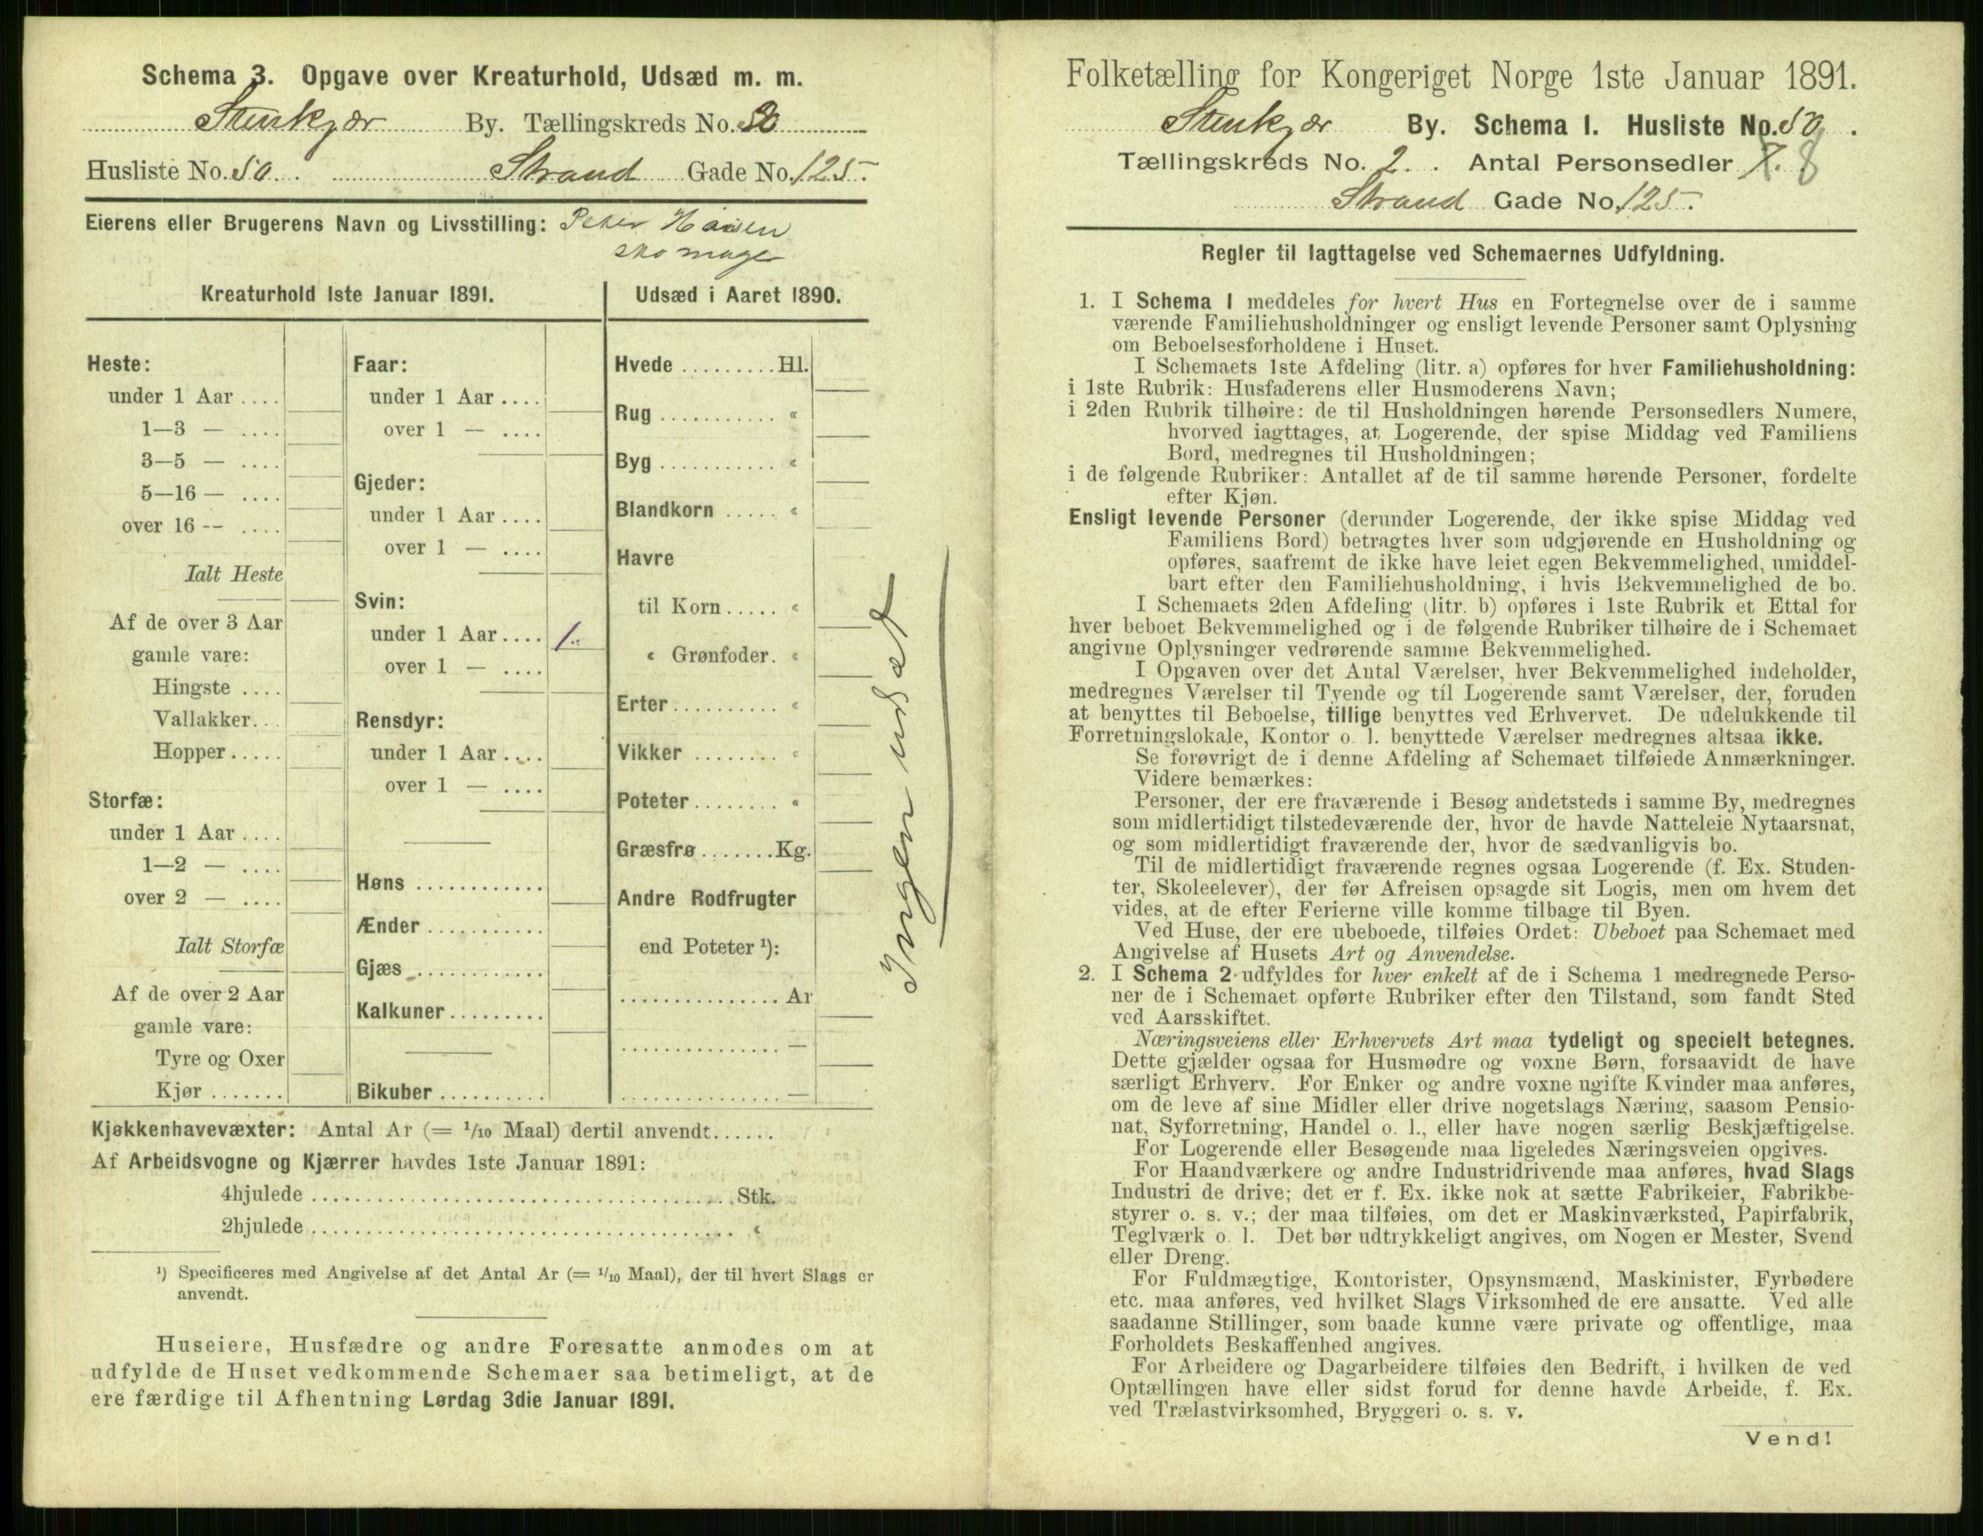 Schema 3. Opgave over Kreaturhold, Udsæd m. m.
Stenkjær By. Tællingskreds No.
Husliste No. 50. Strand Gade No. 125.
Eierens eller Brugerens Navn og Livsstilling: Peter Hansen
skomager
Kreaturhold 1ste Januar 1891.
Heste:
under 1 Aar ....
1—3 — ....
3—5 — ....
5—16 — ....
over 16 -- ....
Ialt Heste
Af de over 3 Aar
gamle vare:
Hingste ....
Vallakker...
Hopper.....
Storfæ:
under 1 Aar ....
1—2 — ....
over 2 — ....
Ialt Storfæ
Af de over 2 Aar
gamle vare:
Tyre og Oxer
Kjør .......
Faar:
under 1 Aar ....
over 1 — ....
Gjeder:
under 1 Aar ....
over 1 — ....
Svin:
under 1 Aar.... 1.
over 1 — ....
Rensdyr:
under 1 Aar....
over 1 — ....
Høns ............
Ænder ...........
Gjæs ............
Kalkuner.........
Bikuber ..........
Udsæd i Aaret 1890.
Hvede .........Hl.
Rug ........... «
Byg ........... «
Blandkorn ..... «
Havre
til Korn..... «
« Grønfoder. «
Erter.......... «
Vikker ........ «
Poteter........ «
Græsfrø .......Kg.
Andre Rodfrugter
end Poteter ¹):
............... Ar
............... —
............... —
Ingen udsæd
Kjøkkenhavevæxter: Antal Ar (= 1/10 Maal) dertil anvendt......
Af Arbeidsvogne og Kjærrer havdes 1ste Januar 1891:
4hjulede ........................................Stk.
2hjulede ........................................ «
¹) Specificeres med Angivelse af det Antal Ar (= 1/10 Maal), der til hvert Slags er
anvendt.
Huseiere, Husfædre og andre Foresatte anmodes om at
udfylde de Huset vedkommende Schemaer saa betimeligt, at de
ere færdige til Afhentning Lørdag 3die Januar 1891.
Folketælling for Kongeriget Norge 1ste Januar 1891.
Stenkjær By. Schema I. Husliste No. 50.
Tællingskreds No. 2. Antal Personsedler 7. 8
Strand Gade No. 125.
Regler til Iagttagelse ved Schemaernes Udfyldning.
1. I Schema 1 meddeles for hvert Hus en Fortegnelse over de i samme
værende Familiehusholdninger og ensligt levende Personer samt Oplysning
om Beboelsesforholdene i Huset.
I Schemaets 1ste Afdeling (litr. a) opføres for hver Familiehusholdning:
i 1ste Rubrik: Husfaderens eller Husmoderens Navn;
i 2den Rubrik tilhøire: de til Husholdningen hørende Personsedlers Numere,
hvorved iagttages, at Logerende, der spise Middag ved Familiens
Bord, medregnes til Husholdningen;
i de følgende Rubriker: Antallet af de til samme hørende Personer, fordelte
efter Kjøn.
Ensligt levende Personer (derunder Logerende, der ikke spise Middag ved
Familiens Bord) betragtes hver som udgjørende en Husholdning og
opføres, saafremt de ikke have leiet egen Bekvemmelighed, umiddel-
bart efter den Familiehusholdning, i hvis Bekvemmelighed de bo.
I Schemaets 2den Afdeling (litr. b) opføres i 1ste Rubrik et Ettal for
hver beboet Bekvemmelighed og i de følgende Rubriker tilhøire de i Schemaet
angivne Oplysninger vedrørende samme Bekvemmelighed.
I Opgaven over det Antal Værelser, hver Bekvemmelighed indeholder,
medregnes Værelser til Tyende og til Logerende samt Værelser, der, foruden
at benyttes til Beboelse, tillige benyttes ved Erhvervet. De udelukkende til
Forretningslokale, Kontor o. l. benyttede Værelser medregnes altsaa ikke.
Se forøvrigt de i denne Afdeling af Schemaet tilføiede Anmærkninger.
Videre bemærkes:
Personer, der ere fraværende i Besøg andetsteds i samme By, medregnes
som midlertidigt tilstedeværende der, hvor de havde Natteleie Nytaarsnat,
og som midlertidigt fraværende der, hvor de sædvanligvis bo.
Til de midlertidigt fraværende regnes ogsaa Logerende (f. Ex. Studen-
ter, Skoleelever), der før Afreisen opsagde sit Logis, men om hvem det
vides, at de efter Ferierne ville komme tilbage til Byen.
Ved Huse, der ere ubeboede, tilføies Ordet: Ubeboet paa Schemaet med
Angivelse af Husets Art og Anvendelse.
2. I Schema 2 udfyldes for hver enkelt af de i Schema 1 medregnede Perso-
ner de i Schemaet opførte Rubriker efter den Tilstand, som fandt Sted
ved Aarsskiftet.
Næringsveiens eller Erhvervets Art maa tydeligt og specielt betegnes.
Dette gjælder ogsaa for Husmødre og voxne Børn, forsaavidt de have
særligt Erhverv. For Enker og andre voxne ugifte Kvinder maa anføres,
om de leve af sine Midler eller drive nogetslags Næring, saasom Pensio-
nat, Syforretning, Handel o. l., eller have nogen særlig Beskjæftigelse.
For Logerende eller Besøgende maa ligeledes Næringsveien opgives.
For Haandværkere og andre Industridrivende maa anføres, hvad Slags
Industri de drive; det er f. Ex. ikke nok at sætte Fabrikeier, Fabrikbe-
styrer o. s. v.; der maa tilføies, om det er Maskinværksted, Papirfabrik,
Teglværk o. l. Det bør udtrykkeligt angives, om Nogen er Mester, Svend
eller Dreng.
For Fuldmægtige, Kontorister, Opsynsmænd, Maskinister, Fyrbødere
etc. maa anføres, ved hvilket Slags Virksomhed de ere ansatte. Ved alle
saadanne Stillinger, som baade kunne være private og offentlige, maa
Forholdets Beskaffenhed angives.
For Arbeidere og Dagarbeidere tilføies den Bedrift, i hvilken de ved
Optællingen have eller sidst forud for denne havde Arbeide, f. Ex.
ved Trælastvirksomhed, Bryggeri o. s. v.
Vend!